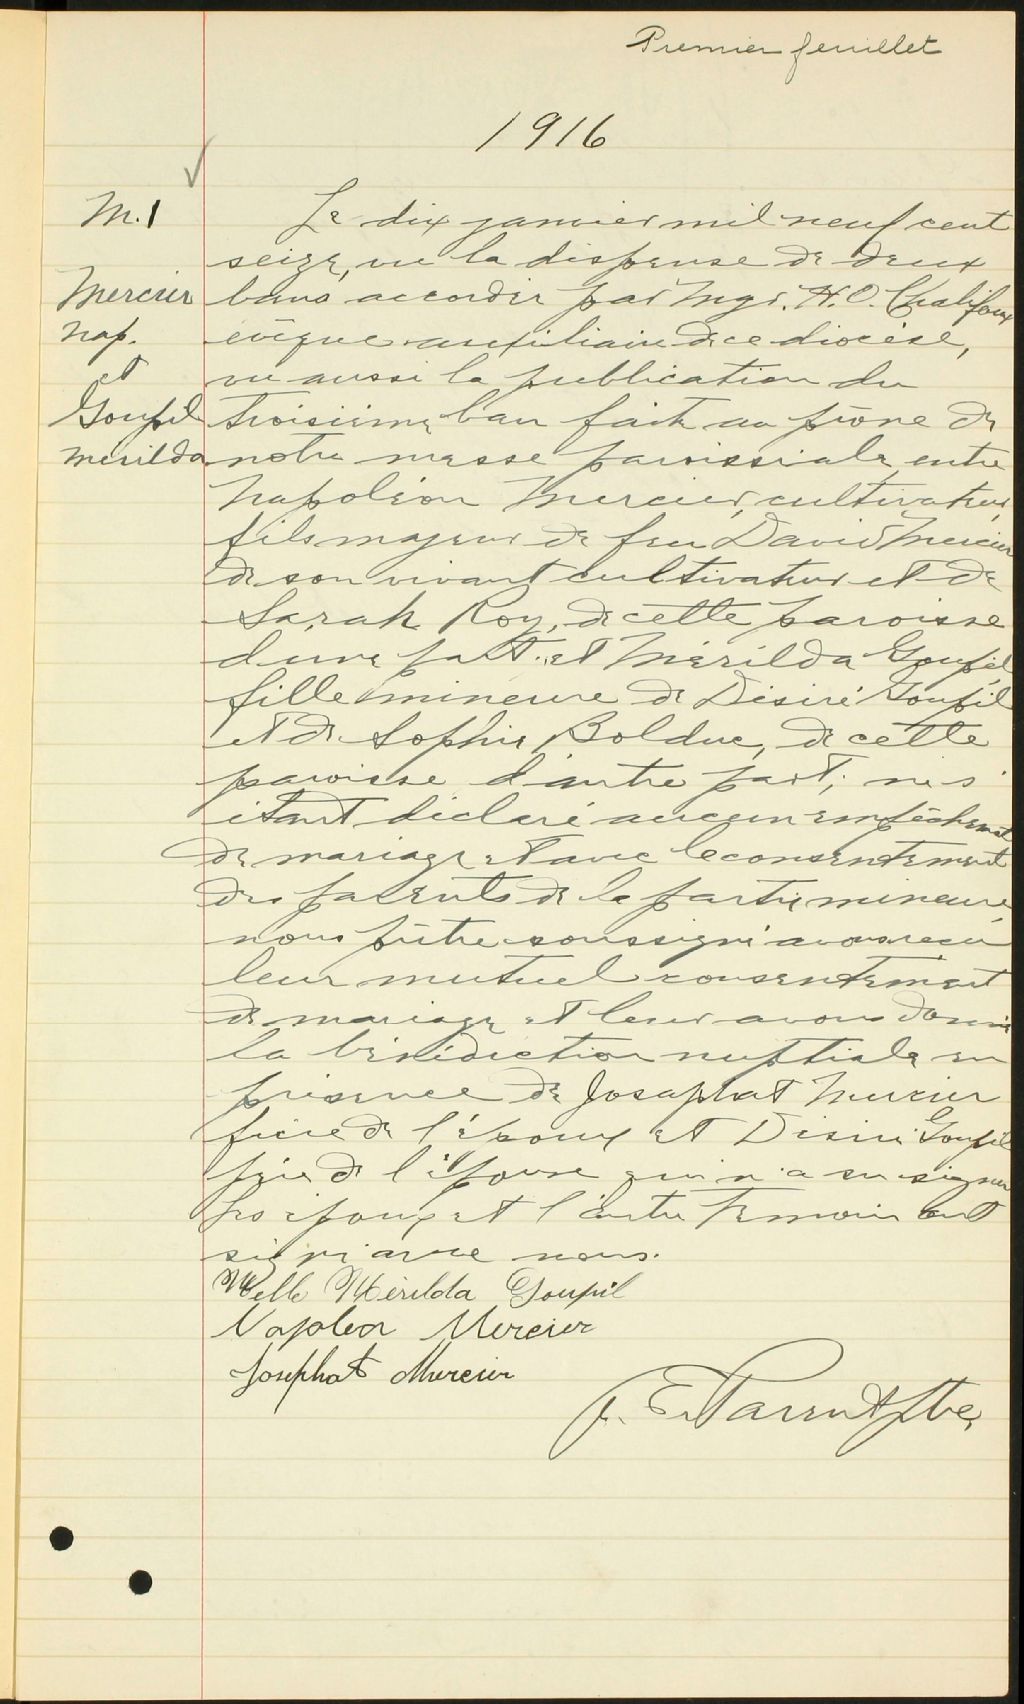 Premier feuillet
1916
M.1
Mercier
Nap.
et
Goupil
Merilda
Le dix janvier mil neuf cent
seize, vu la dispense de deux
bans accordée par Mgr. H. O. Chalifoux
évêque auxiliaire de ce diocèse,
vu aussi la publication du
troisième ban faite au prône de
notre messe paroissiale entre
Napoléon Mercier, cultivateur,
fils majeur de feu David Mercier
de son vivant cultivateur et de
Sarah Roy, de cette paroisse
d'une part; et Mérilda Goupil,
fille mineure de Désiré Goupil
et de Sophie Bolduc, de cette
paroisse d'autre part; ne s'
étant déclaré aucun empêchement
de mariage et avec le consentement
des parents de la partie mineure,
nous prêtre soussigné avons reçu
leur mutuel consentement
de mariage et leur avons donné
la bénédiction nuptiale en
présence de Josaphat Mercier
frère de l'époux et Désiré Goupil
père de l'épouse qui n'a su signer
Les époux et l'autre témoin ont
signé avec nous.
Melle Mérilda Goupil
Napoleon Mercier
Josephat Mercier
J. E. Parent Ptre